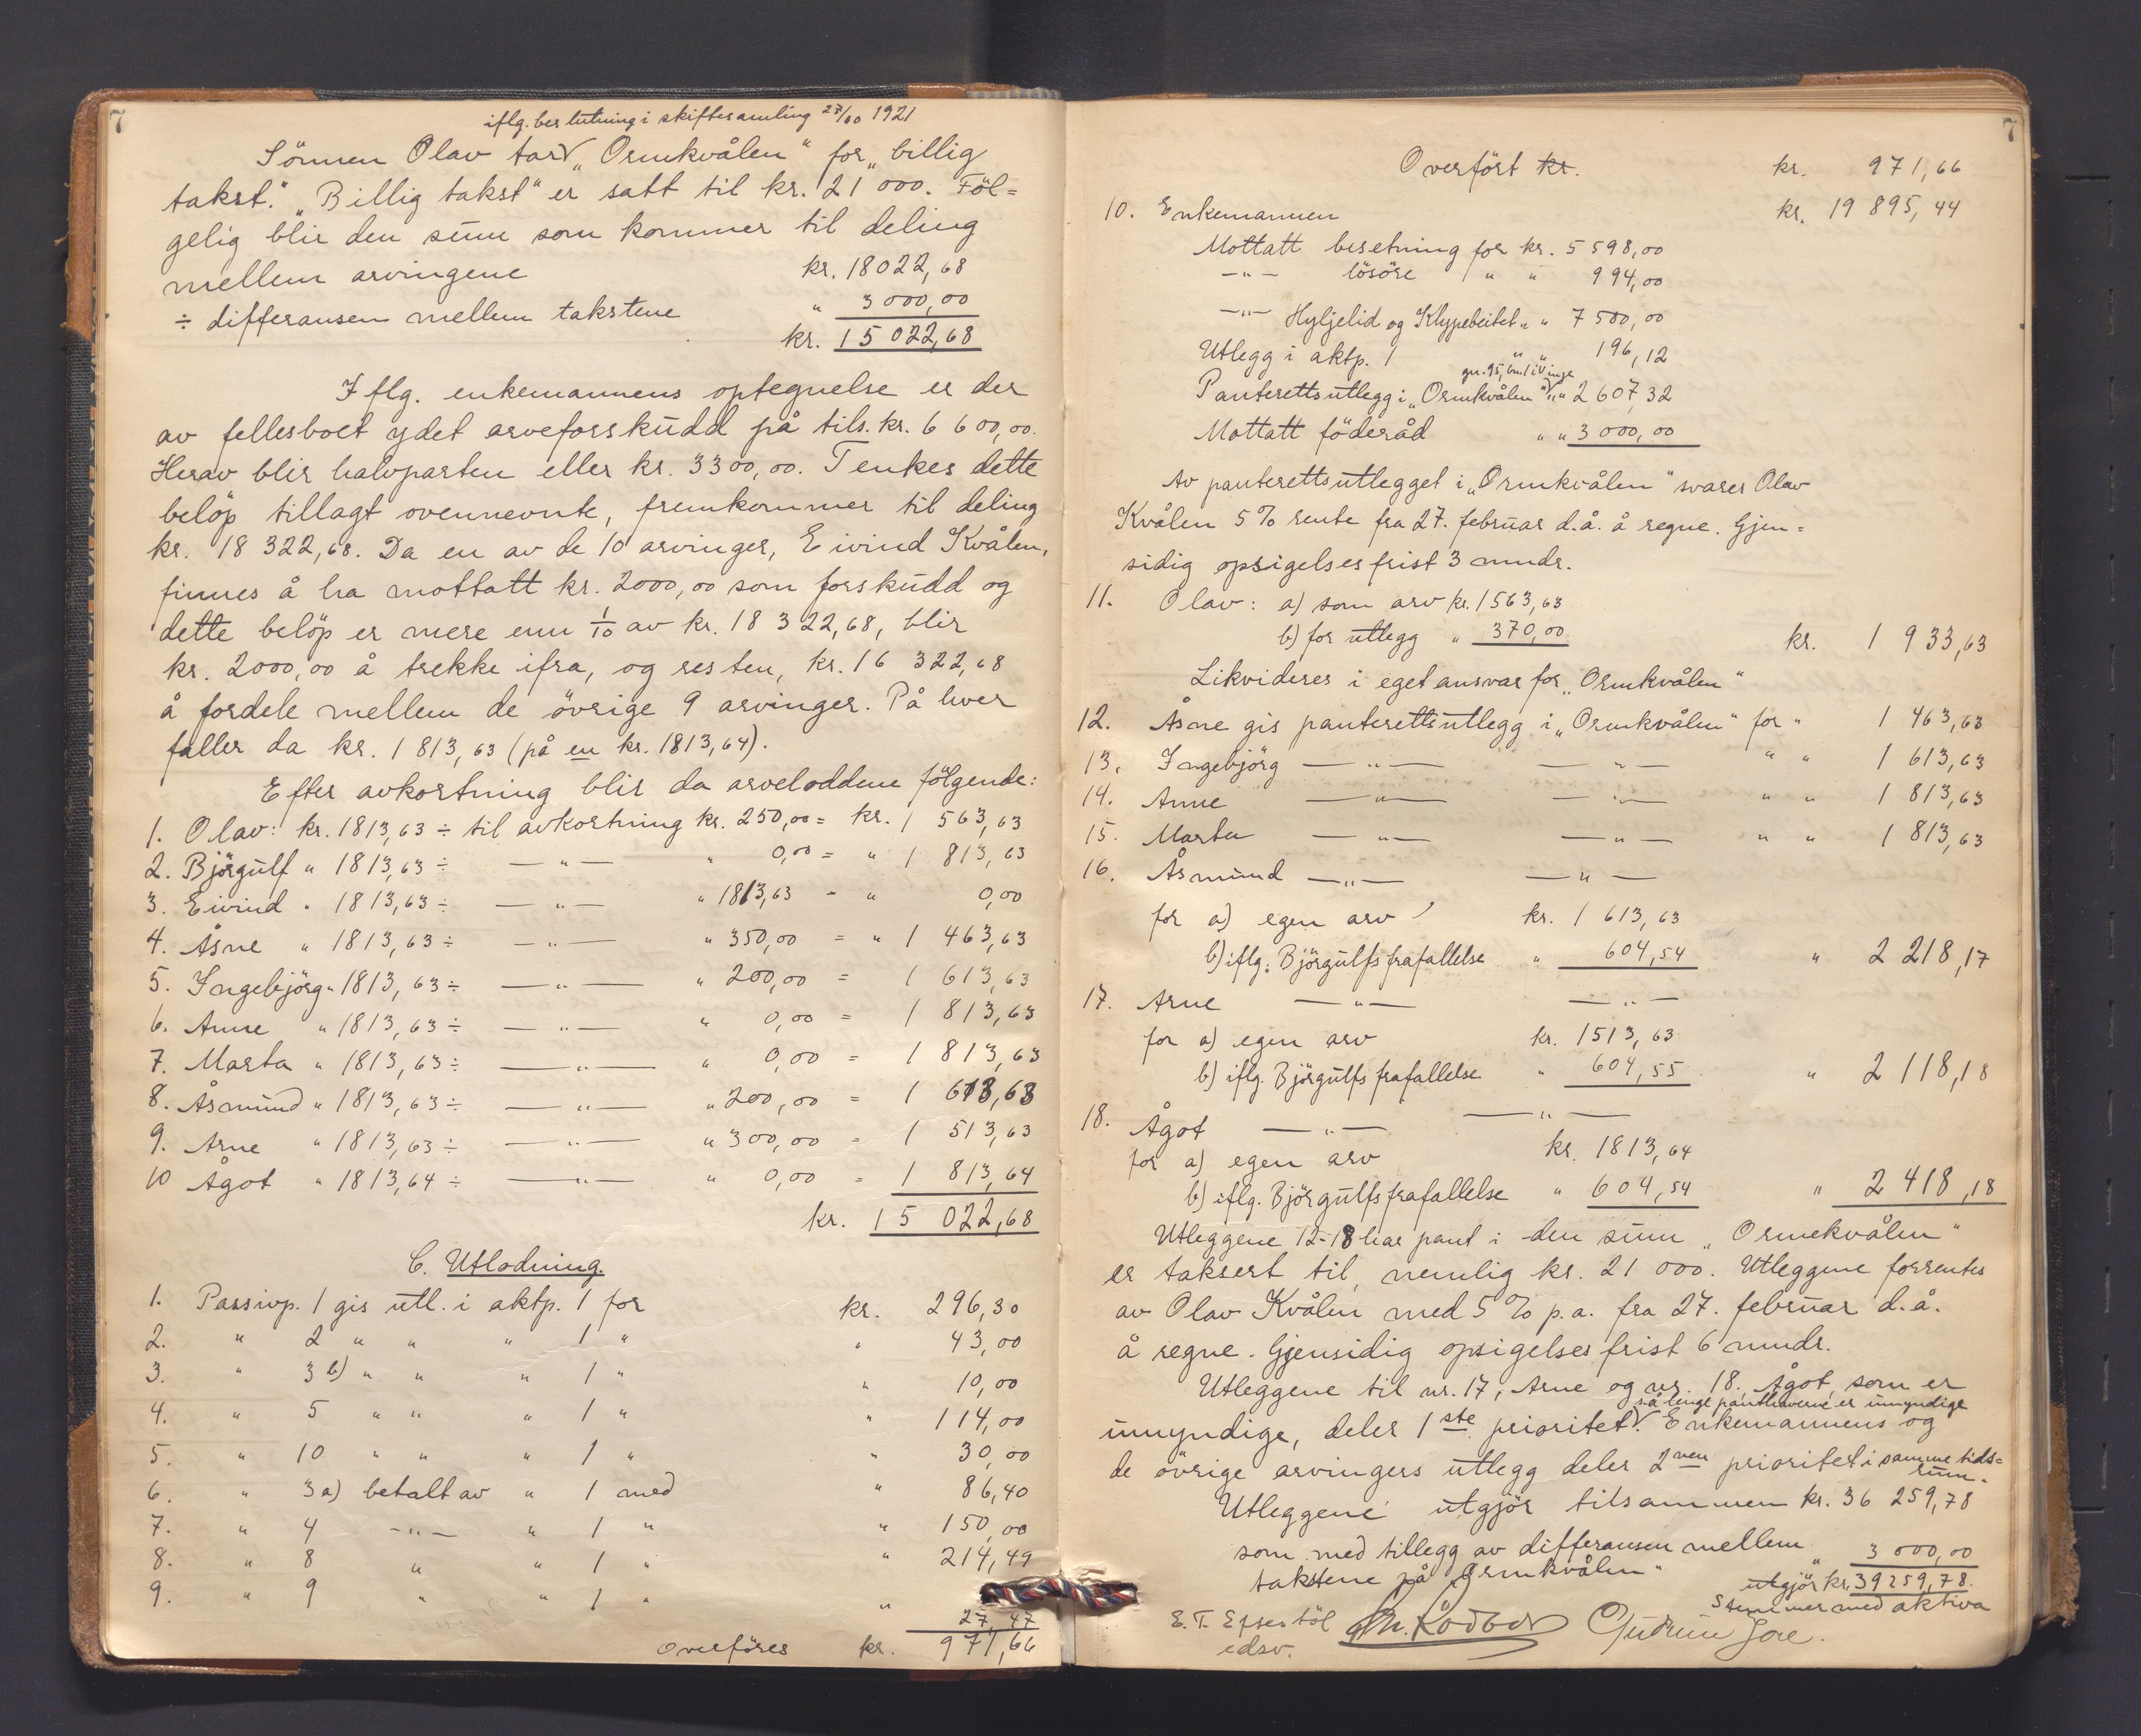 7
iflg. beslutning i skiftesamling 27/10 1921
Sönnen Olav tar V „Ormkvålen" for „billig
takst." „Billig takst" er satt til kr. 21 000. Föl=
gelig blir den sum som kommer til deling
mellem arvingene kr. 18022,68
÷ differansen mellem takstene " 3 000,00
kr. 15 022,68
Iflg. enkemannens optegnelse er der
av fellesboet ydet arveforskudd på tils. kr. 6 600,00.
Herav blir halvparten eller kr. 3300,00. Tenkes dette
belöp tillagt ovennevnte, fremkommer til deling
kr. 18 322,68. Da en av de 10 arvinger, Eivind Kvålen,
finnes å ha mottatt kr. 2000,00 som forskudd og
dette belöp er mere enn 1/10 av kr. 18 322,68, blir
kr. 2000,00 å trekke ifra, og resten, kr. 16 322,68
å fordele mellem de övrige 9 arvinger. På hver
faller da kr. 1 813,63 (på en kr. 1813,64).
Efter avkortning blir da arveloddene fölgende:
1. Olav: kr. 1813,63 ÷ til avkortning kr. 250,00 = kr. 1 563,63
2. Björgulf " 1813,63 ÷ — " — " 0,00 = " 1 813,63
3. Eivind " 1813,63 ÷ — " — " 1813,63 = " 0,00
4. Åsne " 1813,63 ÷ — " — " 350,00 = " 1 463,63
5. Ingebjörg " 1813,63 ÷ — " — " 200,00 = 1 613,63
6. Anne " 1813,63 ÷ — " — " 0,00 = 1 813,63
7. Marta " 1813,63 ÷ — " — " 0,00 = 1 813,63
8. Åsmund " 1813,63 ÷ — " — " 200,00 = 1 613,63
9. Arne " 1813,63 ÷ — " — " 300,00 = 1 513,63
10 Ågot " 1813,64 ÷ — " — " 0,00 = 1 813,64
kr. 15 022,68
C. Utlodning.
1. Passivp. 1 gis utl. i aktp. 1 for kr. 296,30
2. " 2 " " " 1 " " 43,00
3. " 3 b) " " " 1 " " 10,00
4. " 5 " " " 1 " " 114,00
5. " 10 " " " 1 " " 30,00
6. " 3 a) betalt av " 1 med " 86,40
7. " 4 — " — " 1 " " 150,00
8. " 8 " " 1 " " 214,49
9. " 9 " " 1 " " 27,47
overföres kr. 971,66
7
Overfört kr. kr. 971,66
10. Enkemannen kr. 19 895,44
Mottatt besetning for kr. 5 598,00
— " — lösöre " " 994,00
— " — Hyljelid og Klypebeitet " " 7 500,00
Utlegg i aktp. 1 " " 196,12
gnr. 95, bnr. 1 i Vinje
Panterettsutlegg i „Ormkvålen" V " " 2 607,32
Mottatt föderåd " " 3 000,00
Av panterettsutlegget i „Ormkvålen" svarer Olav
Kvålen 5 % rente fra 27. februar d.å. å regne. Gjen=
sidig opsigelsesfrist 3 mndr.
11. Olav: a) som arv kr. 1563,63
b) for utlegg " 370,00 kr. 1 933,63
Likvideres i eget ansvar for „Ormkvålen"
12. Åsne gis panterettsutlegg i „Ormkvålen" for " 1 463,63
13. Ingebjörg — " — — " — " " 1 613,63
14. Anne — " — — " — " " 1 813,63
15. Marta — " — — " — " " 1 813,63
16. Åsmund — " — — " —
for a) egen arv kr. 1 613,63
b) iflg. Björgulfs frafallelse " 604,54 " 2 218,17
17. Arne — " — — " —
for a) egen arv kr. 1513,63
b) iflg. Björgulfs frafallelse " 604,55 " 2 118,18
18. Ågot — " — — " —
for a) egen arv kr. 1813,64
b) iflg. Björgulfs frafallelse " 604,54 " 2 418,18
Utleggene 12-18 har pant i den sum „Ormekvålen"
er taksert til, nemlig kr. 21 000. Utleggene forrentes
av Olav Kvålen med 5 % p.a. fra 27. februar d.å.
å regne. Gjensidig opsigelsesfrist 6 mndr.
Utleggene til nr. 17, Arne og nr. 18, Ågot, som er
så lenge panthaverne er umyndige
umyndige, deler 1ste prioritet V. Enkemannens og
de övrige arvingers utlegg deler 2nen prioritet i samme tids=
rum.
Utleggene utgjör tilsammen kr. 36 259,78
som med tillegg av differansen mellem
takstene på „Ormkvålen" " 3 000,00
utgjör kr. 39259,78.
Stemmer med aktiva
E. T. Efsestöl
edsv.
Gudrun Jore.